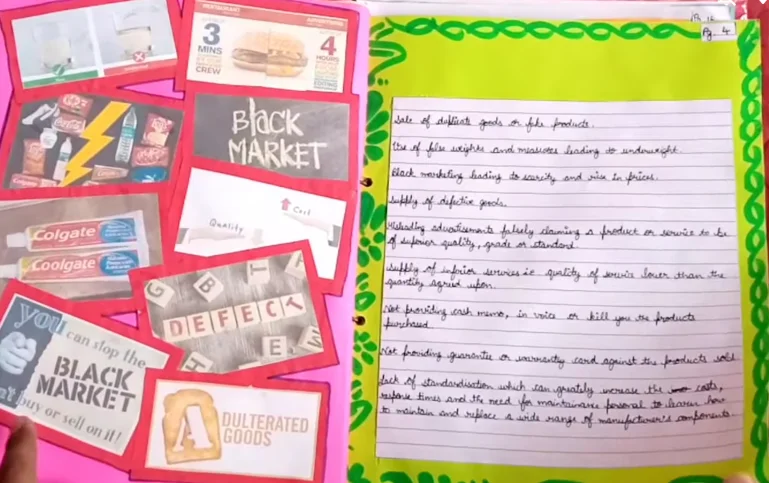 RESTAURANT
ADVERTISING
3
MINS
CREW
4
HOURS
EDITING
BlacK
MARKET
Colgate
Coolgate
Quality
Cost
G
B
T
DEFECT
E
W
H
you can stop the
BLACK
MARKET
buy or sell on it!
A DULTERATED
GOODS
Pg. 4
Sale of duplicate goods or fake products.
Use of false weights and measures leading to underweight.
Black marketing leading to scarcity and rise in prices.
Supply of defective goods.
Misleading advertisements falsely claiming a product or service to be
of superior quality, grade or standard.
Supply of inferior services i.e quality of service lower than the
quantity agreed upon.
Not providing cash memo, in voice or bill you the products
purchased.
Not providing guarantee or warranty card against the products sold
Lack of standardisation which can greately increase the costs,
response times and the need for maintainance personal to learn how
to maintain and replace a wide range of manufacturer's components.